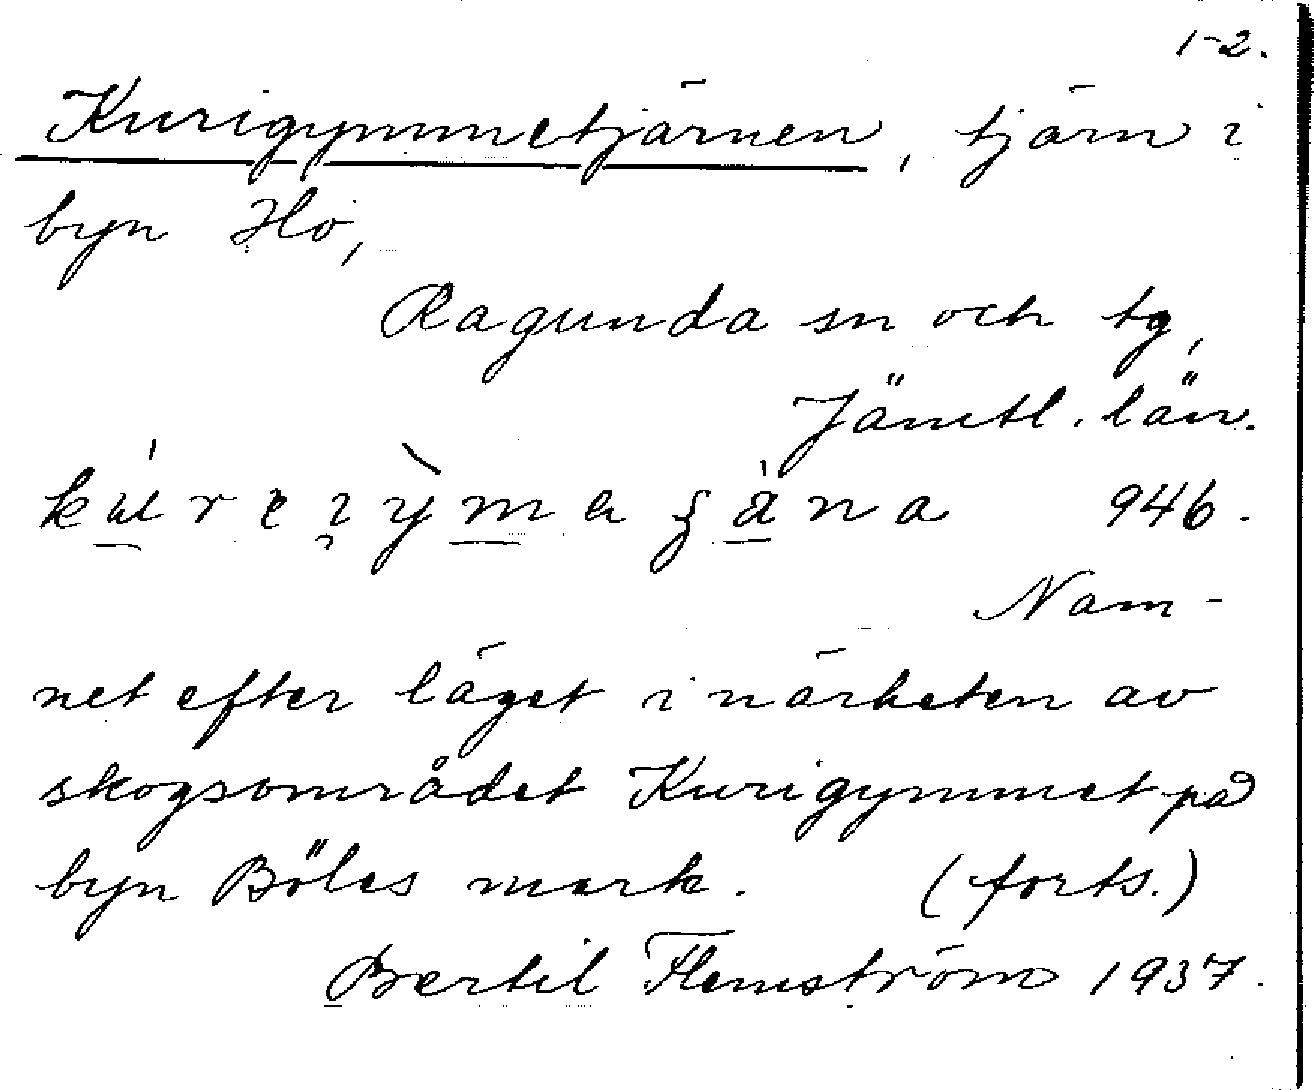 1-2.
Kurigymmetjärnen, tjärn i
byn Hö,
Ragunda sn och tg,
Jämtl. län.
946.
Nam-
net efter läget i närheten av
skogsområdet Kurigymmet på
byn Böles mark. (forts.)
Bertil Flemström 1937.